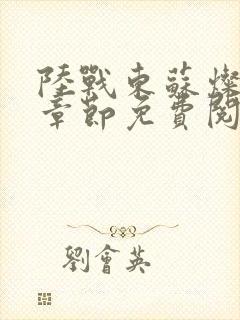 陸戰東蘇燦
章節免費閱
劉會英